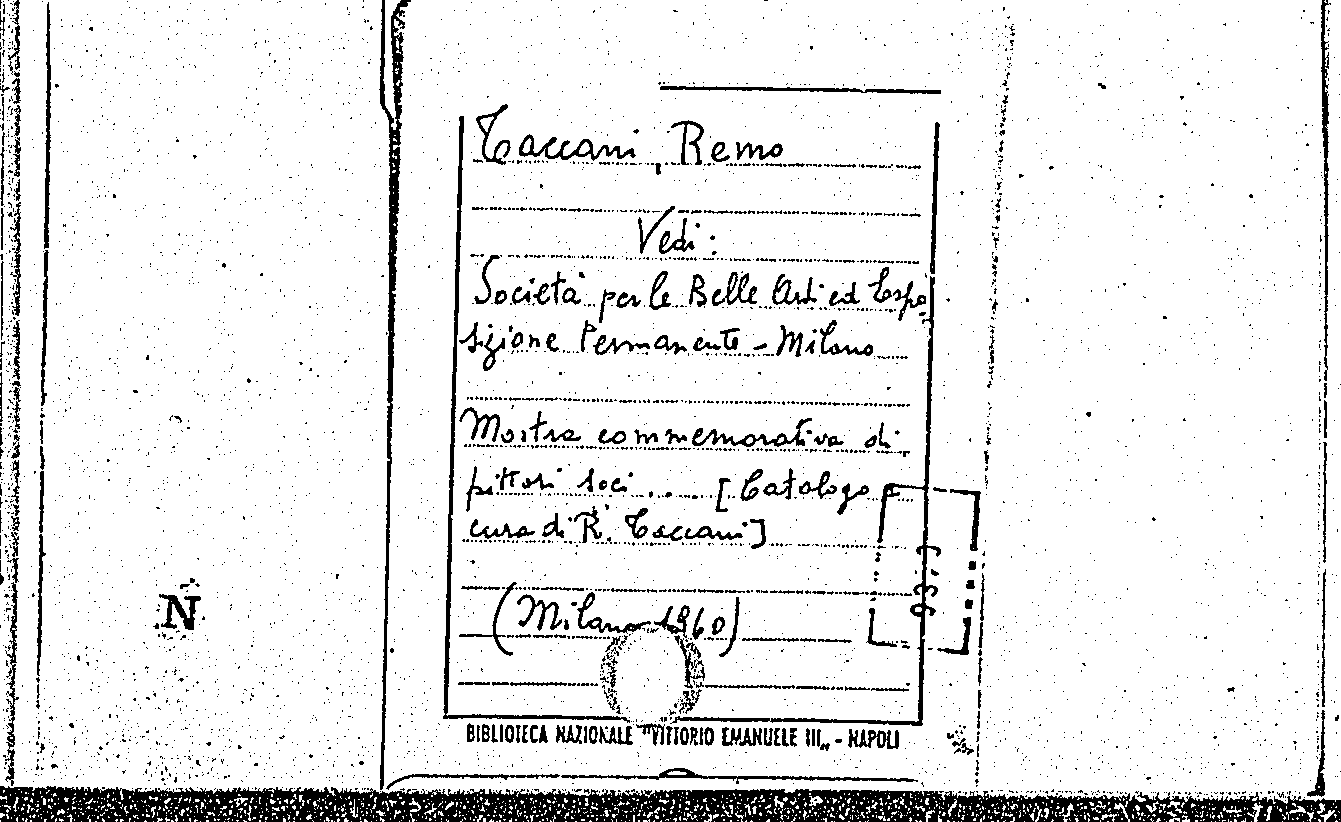 Taccani, Remo
Vedi:
Società per le Belle Arti ed Espo
sizione Permanente - Milano
Mostra commemorativa di
pittori soci ... [Catalogo a
cura di R. Taccani]
(Milano 1960)
N
BIBLIOTECA NAZIONALE "VITTORIO EMANUELE III„ - NAPOLI